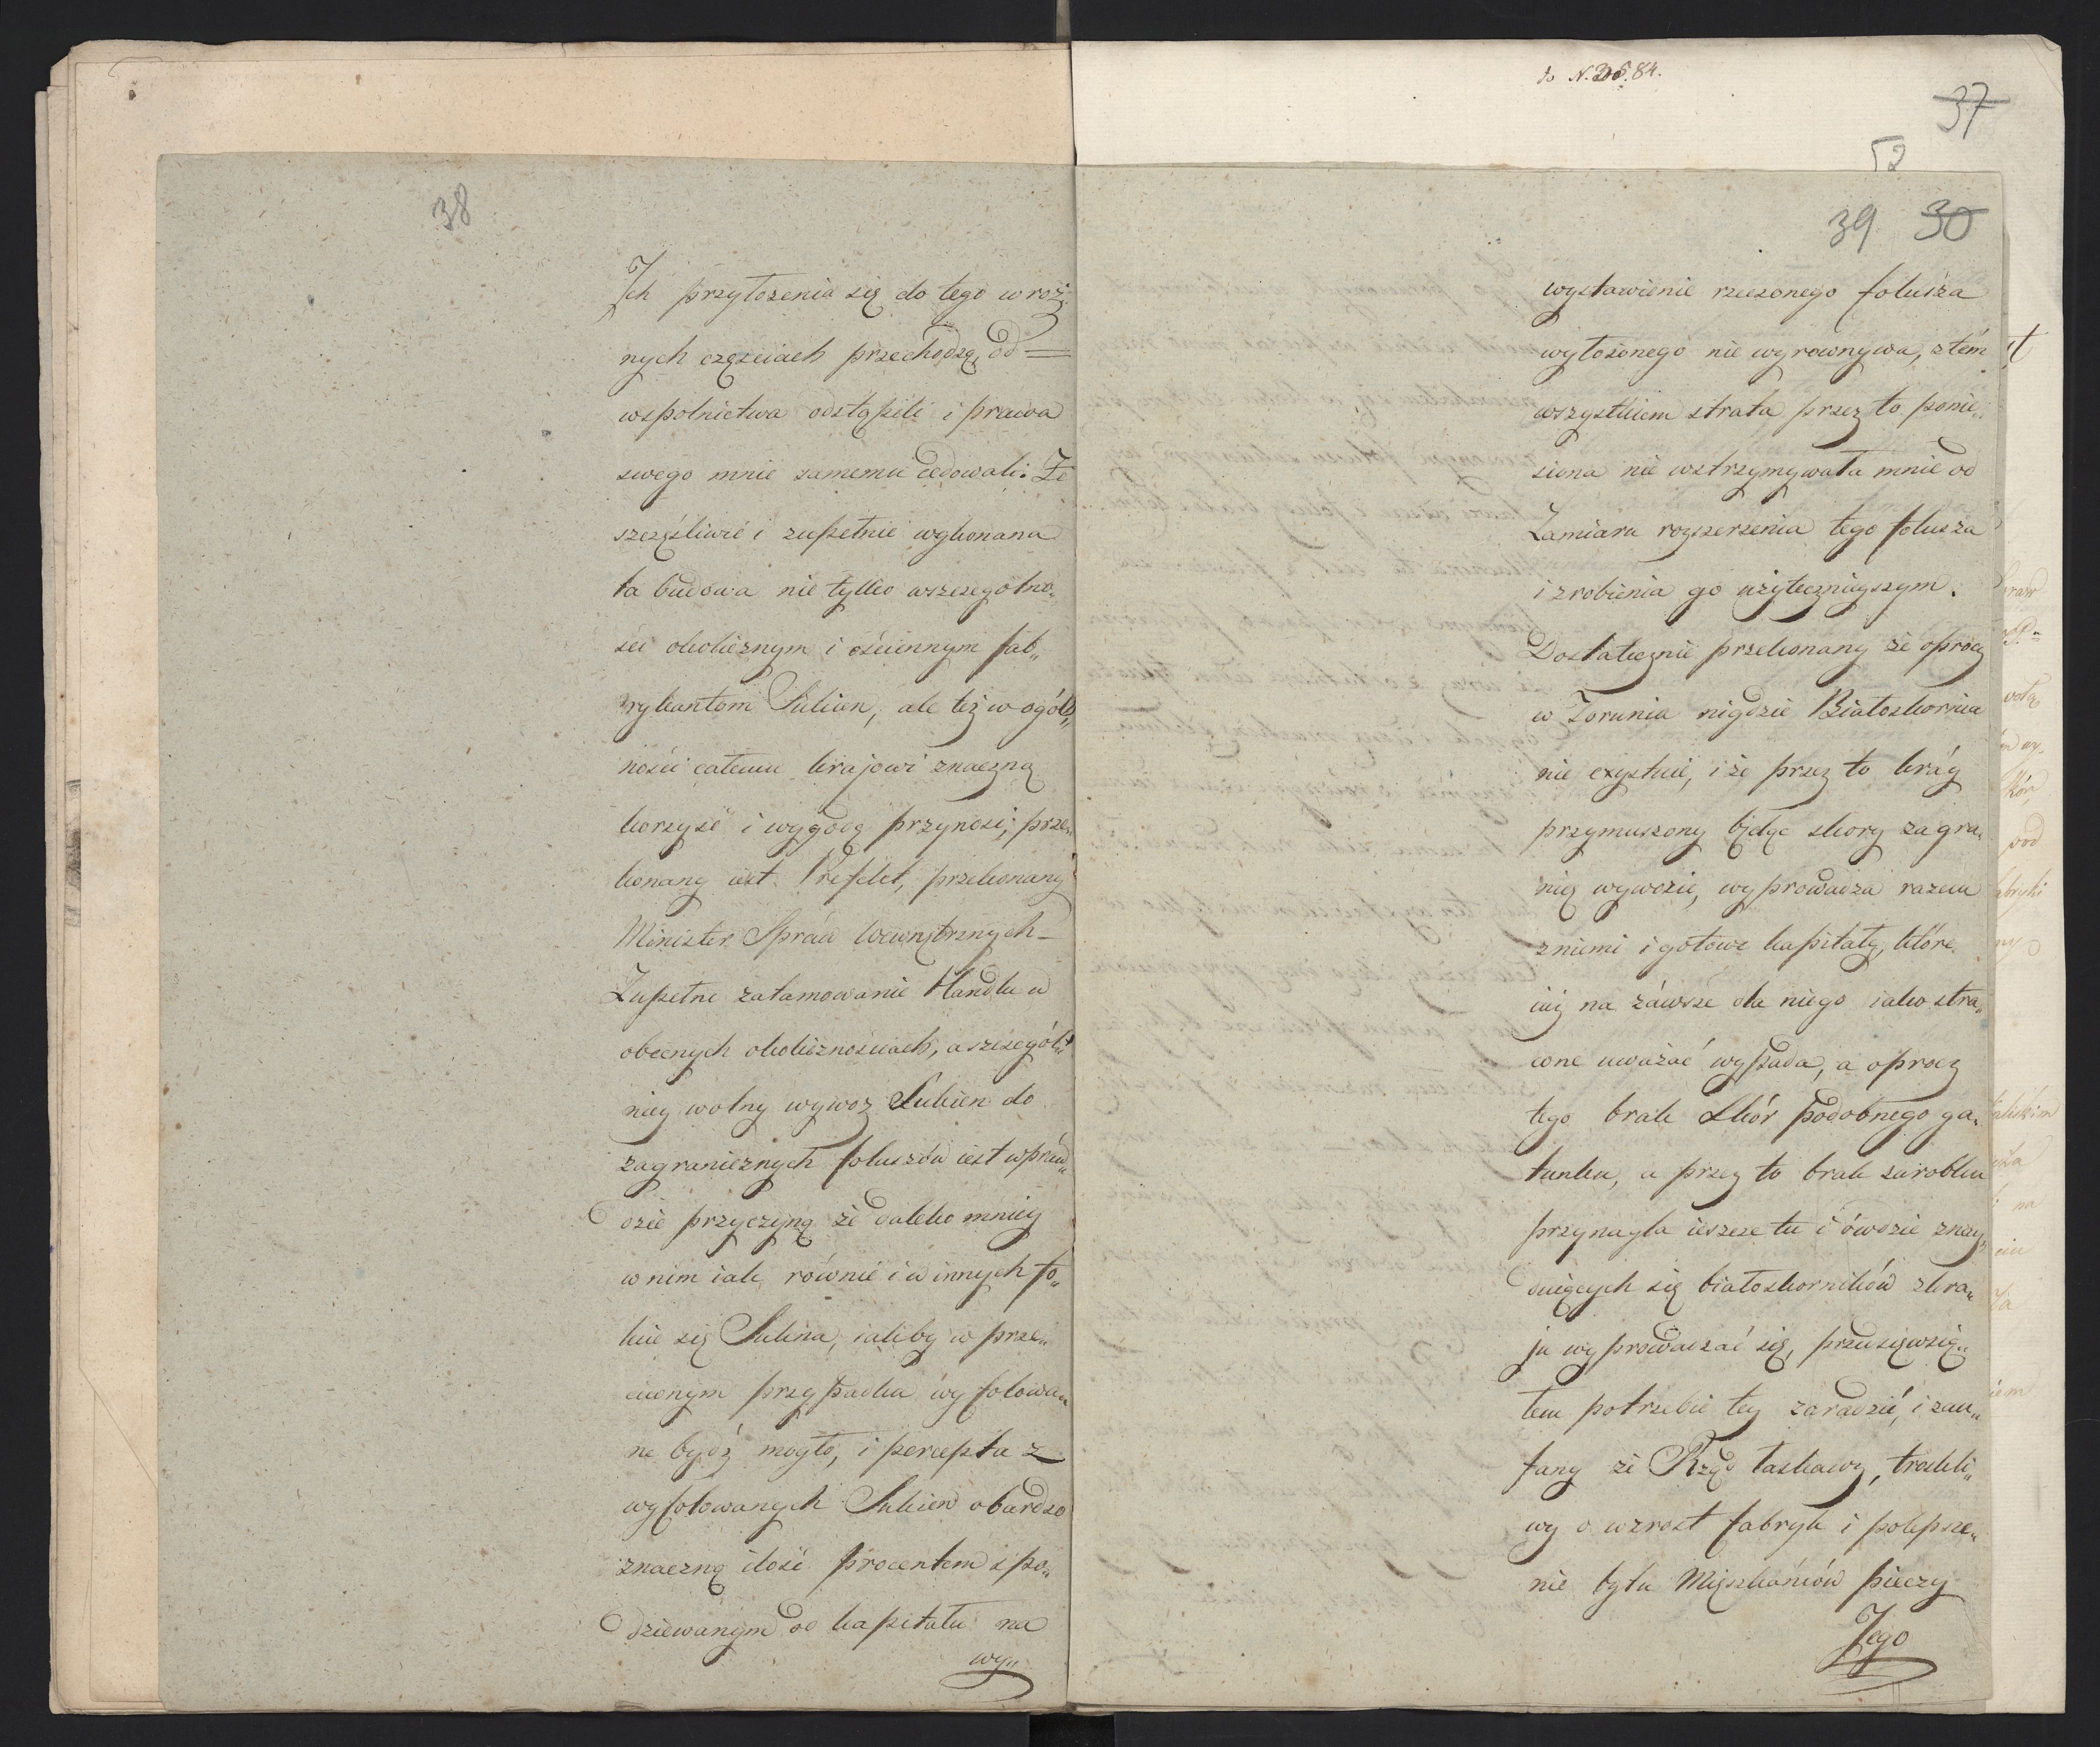 38
Ich przyłożenia się do tego w roż„
nych częsciach przechodzą, od =
wspolnictwa odstąpili i prawa
swego mnie samemu cedowali: Że
szczęśliwie i zupełnie wykonana
ta budowa nie tylko wszczegolno„
ści okolicznym i ościennym fab„
rykantom Sukien, ale też w ogól„
ności całemu krajowi znaczną
korzyść i wygodę przynosi; prze„
konany iest Prefekt, przekonany
Minister Spraw Wewnętrznych_
Zupełne zatamowanie Handlu w
obecnych okolicznościach, a szczegól„
niey wolny wywoz Sukien do
zagranicznych foluszów iest wpraw„
dzie przyczyną że daleko mniey
w nim iak równie i w innych fo„
luie się Sukna, iakby w prze„
ciwnym przypadku wy folowa„
ne bydź mogło, i percepta z
wyfolowanych Sukien o bardzo
znaczną ilość procentem spo„
dziewanym od kapitału na
wy„
do N. 84.
37
52
39 30
wystawienie rzeczonego folusza
wyłożonego nie wyrownywa, z tém
wszystkiem strata przez to ponie„
siona nie wstrzymywała mnie od
Zamiaru rozszerzenia tego folusza
i zrobienia go użytecznieyszym.
Dostatecznie przekonany że oprocz
w Toruniu nigdzie Białoskornia
nie exystuie, i że przez to kráy
przymuszony będąc skory zagra„
nię wywozić, wyprowadza razem
zniemi i gotowe kapitały, które
iuż na záwsze dla niego iako stra„
cone uważać wypada, a oprocz
tego brak Skór podobnego ga„
tunku, a przez to brak zarobku
przynagla ieszcze tu i ówdzie znay„
duiących się białoskorników z kra„
ju wyprowadzać się, przedsięwzią„
łem potrzebie tey zaradzić, i zau„
fany że Rząd łaskawy, troskli„
wy o wzrost fabryk i polepsze„
nie bytu Mięszkańców pieczy
Jego